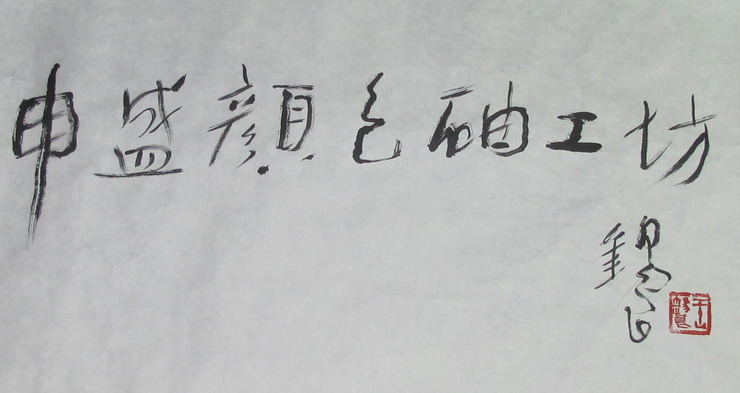 申盛顏色硒工坊